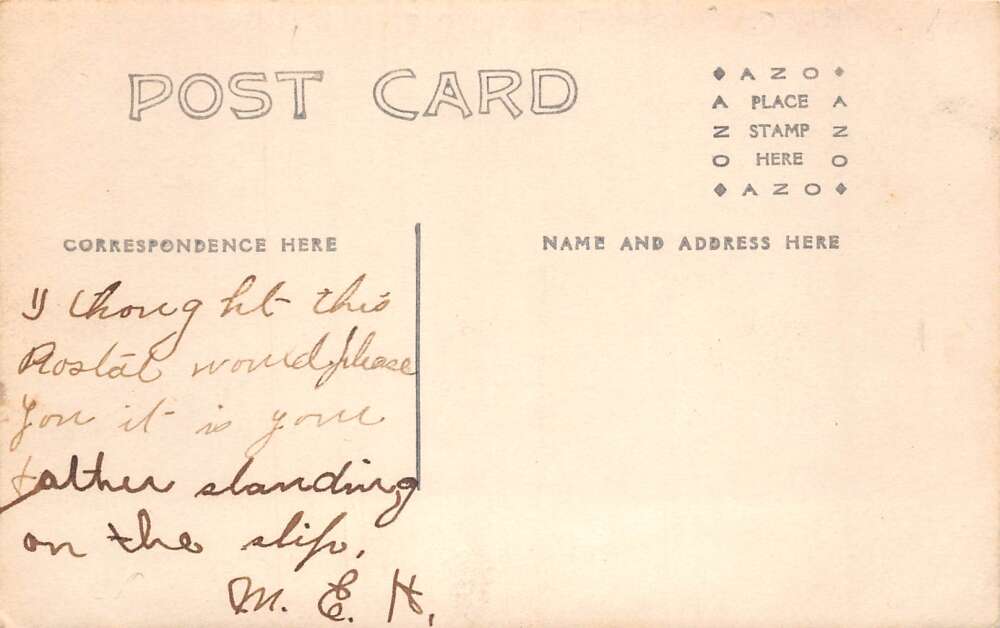 POST CARD
AZO
A PLACE A
Z STAMP Z
O HERE O
AZO
CORRESPONDENCE HERE
NAME AND ADDRESS HERE
I thought this
Postal would please
you it is your
father standing
on the slip.
M. E. H.